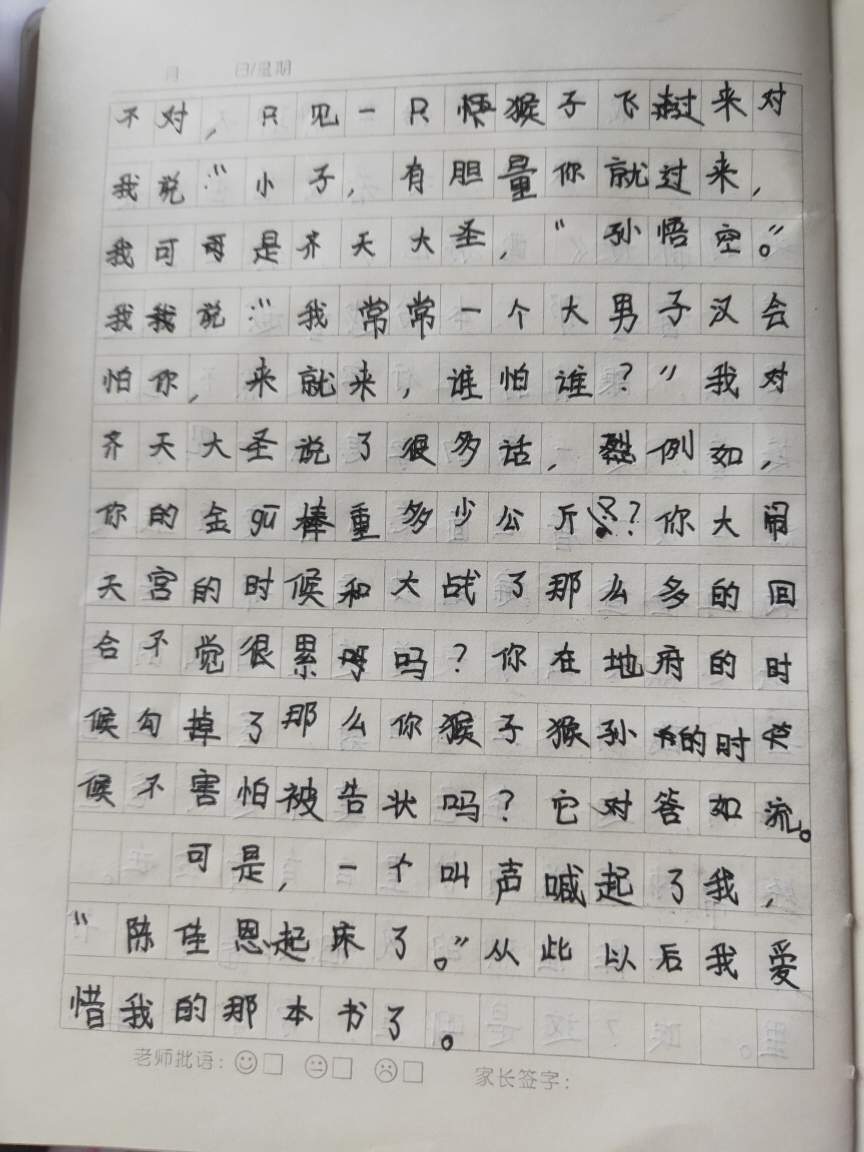 月 日/星期
不对，只见一只猴子飞过来对
我说：“小子，有胆量你就过来，
我可是齐天大圣，“孙悟空。”
我说：“我常常一个大男子汉会
怕你，来就来，谁怕谁？”我对
齐天大圣说了很多话，例如，
你的金gū棒重多少公斤？你大闹
天宫的时候和大战了那么多的回
合不觉很累吗？你在地府的时
候勾掉了那么你猴子猴孙的时
候不害怕被告状吗？它对答如流。
可是，一个叫声喊起了我，
“陈佳恩起床了。”从此以后我爱
惜我的那本书了。
老师批语： 家长签字：